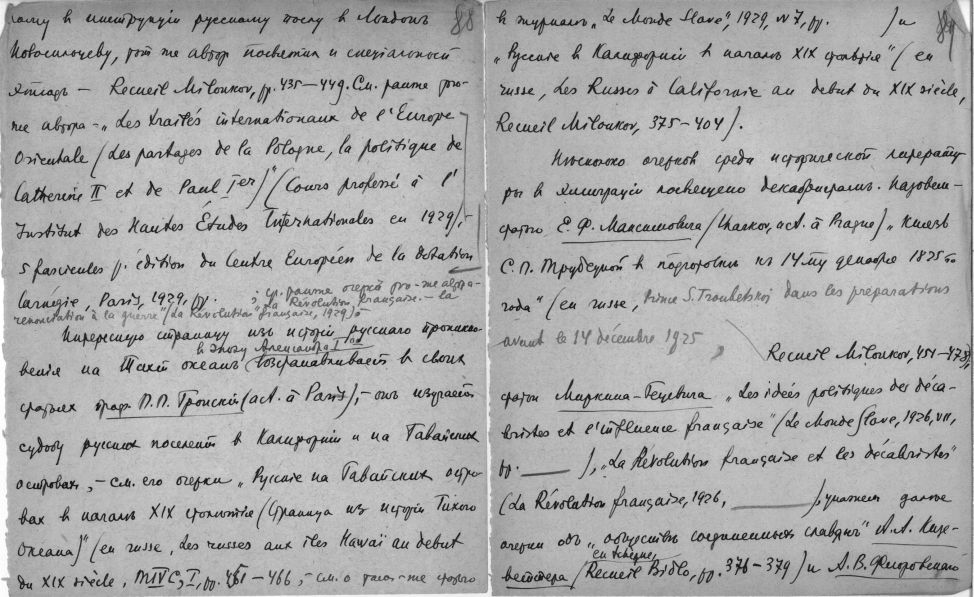 88
въ инструкціи русскому послу въ Лондонѣ
Новосильцеву, этотъ же авторъ посвятилъ и спеціальный
этюдъ — Recueil Miloukov, pp. 435—449. См. ранѣе того-
же автора — „Les traités internationaux de l'Europe
Orientale (Les partages de la Pologne, la politique de
Catherine II et de Paul Ier)" (Cours professé à l'
Institut des Hautes Études Internationales en 1929),
5 fascicules, édition du Centre Européen de la Dotation
Carnégie, Paris, 1929, pp.
; ср. ранѣе очеркъ того-же автора-
„La Révolution française — la
renonciation à la guerre" (La Révolution française, 1929)
Интересную страницу изъ исторіи русскаго проникно-
въ эпоху Александра I
венія на Тихій океанъ возстанавливаетъ въ своихъ
статьяхъ графъ П.П. Тронскій (act. à Paris), — онъ изучаетъ
судьбу русскихъ поселеній въ Калифорніи и на Гавайскихъ
островахъ, — см. его очерки „Русскіе на Гавайскихъ остро-
вахъ въ началѣ XIX столѣтія (Страница изъ исторіи Тихого
Океана)" (en russe, Les russes aux îles Hawaï au debut
du XIX siècle, MIVC, I, pp. 461—466, — см. о томъ-же статью
89
въ журналѣ „Le Monde Slave", 1929, VII, pp. ) и
„Русскіе въ Калифорніи въ началѣ XIX столѣтія" (en
russe, Les Russes à Californie au debut du XIX siècle,
Recueil Miloukov, 375—404).
Нѣсколько очерковъ среди исторической литерату-
ры въ эмиграціи посвящено декабристамъ. Назовемъ
статью Е. Ф. Максимовича (Kharkov, act. à Prague) „Князь
С. П. Трубецкой въ подготовкѣ къ 14му декабря 1825го
года" (en russe, Prince S. Troubetskoj dans les preparations
avant le 14 décembre 1925,
Recueil Miloukov, 451—478),
статьи Миркина-Гецевича „Les idées politiques des déca-
bristes et l'influence française" (Le Monde Slave, 1926, VII,
pp. ___ ), „La Révolution française et les décabristes"
(La Révolution française, 1926, ___ ), укажемъ далѣе
очерки объ „обществѣ соединенныхъ славянъ" А.А. Кизе-
en tchèque,
веттера (Recueil Bidlo, pp. 376—379) и А. В. Флоровскаго